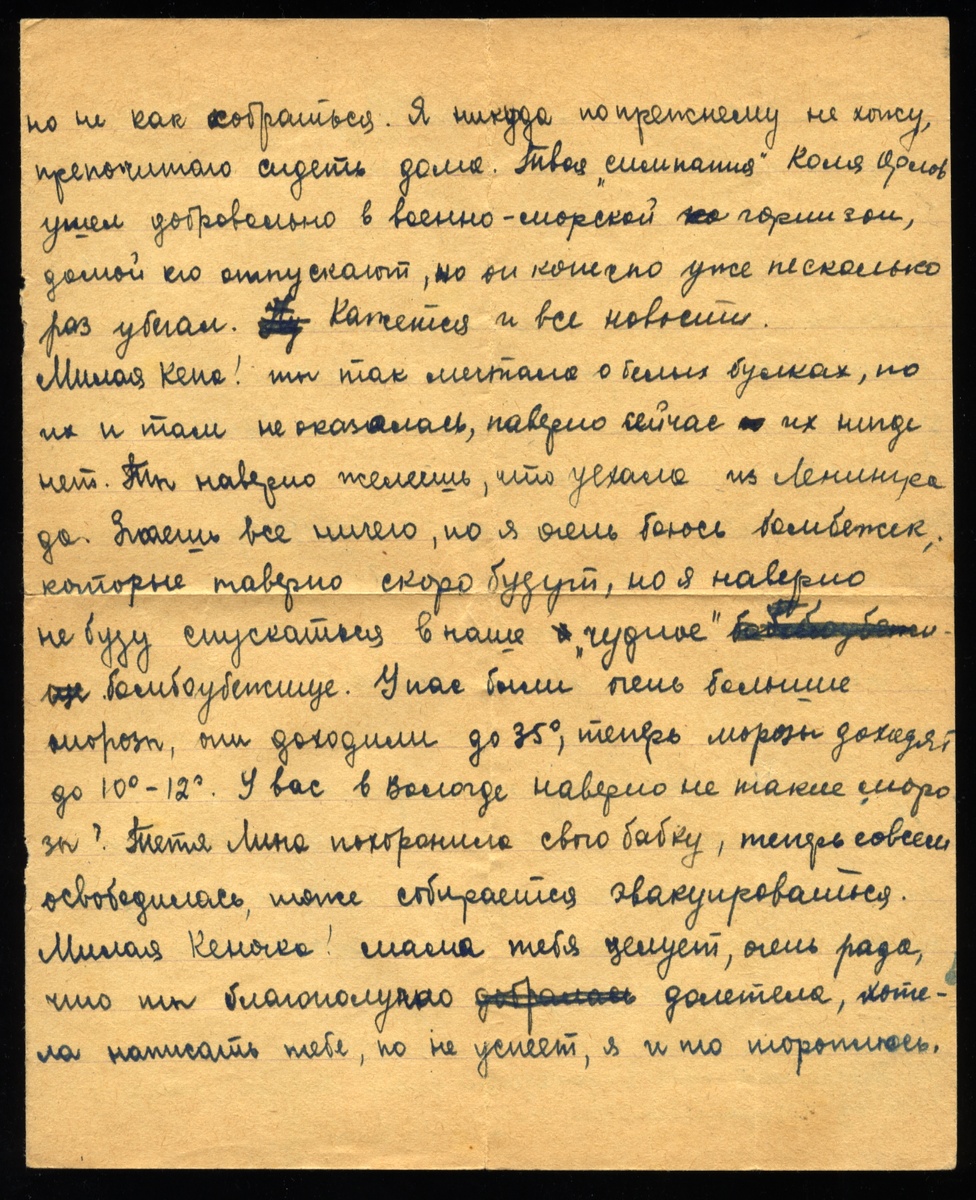 но не как собраться. Я никуда попрежнему не хожу,
препочитаю сидеть дома. Твоя „симпатия" Коля Орлов
ушел добровольно в военно-морской гарнизон,
домой его отпускают, но он конечно уже несколько
раз убегал. Кажется и все новости.
Милая Кена! ты так мечтала о белых булках, но
их и там не оказалась, наверно сейчас их нигде
нет. Ты наверно жалеешь, что уехала из Ленингра
да. Знаешь все ничего, но я очень боюсь бомбежек,
которые наверно скоро будут, но я наверно
не буду спускаться в наше „чудное"
бомбоубежище. У нас были очень большие
морозы, они доходили до 35°, теперь морозы доходят
до 10°-12°. У вас в Вологде наверно не такие моро
зы? Тетя Лина похоронила свого бабку, теперь совсем
освободилась, тоже собирается эвакуироваться.
Милая Кеночка! мама тебя целует, очень рада,
что ты благополучно добралась долетела, хоте-
ла написать тебе, но не успеет, я и то тороплюсь.